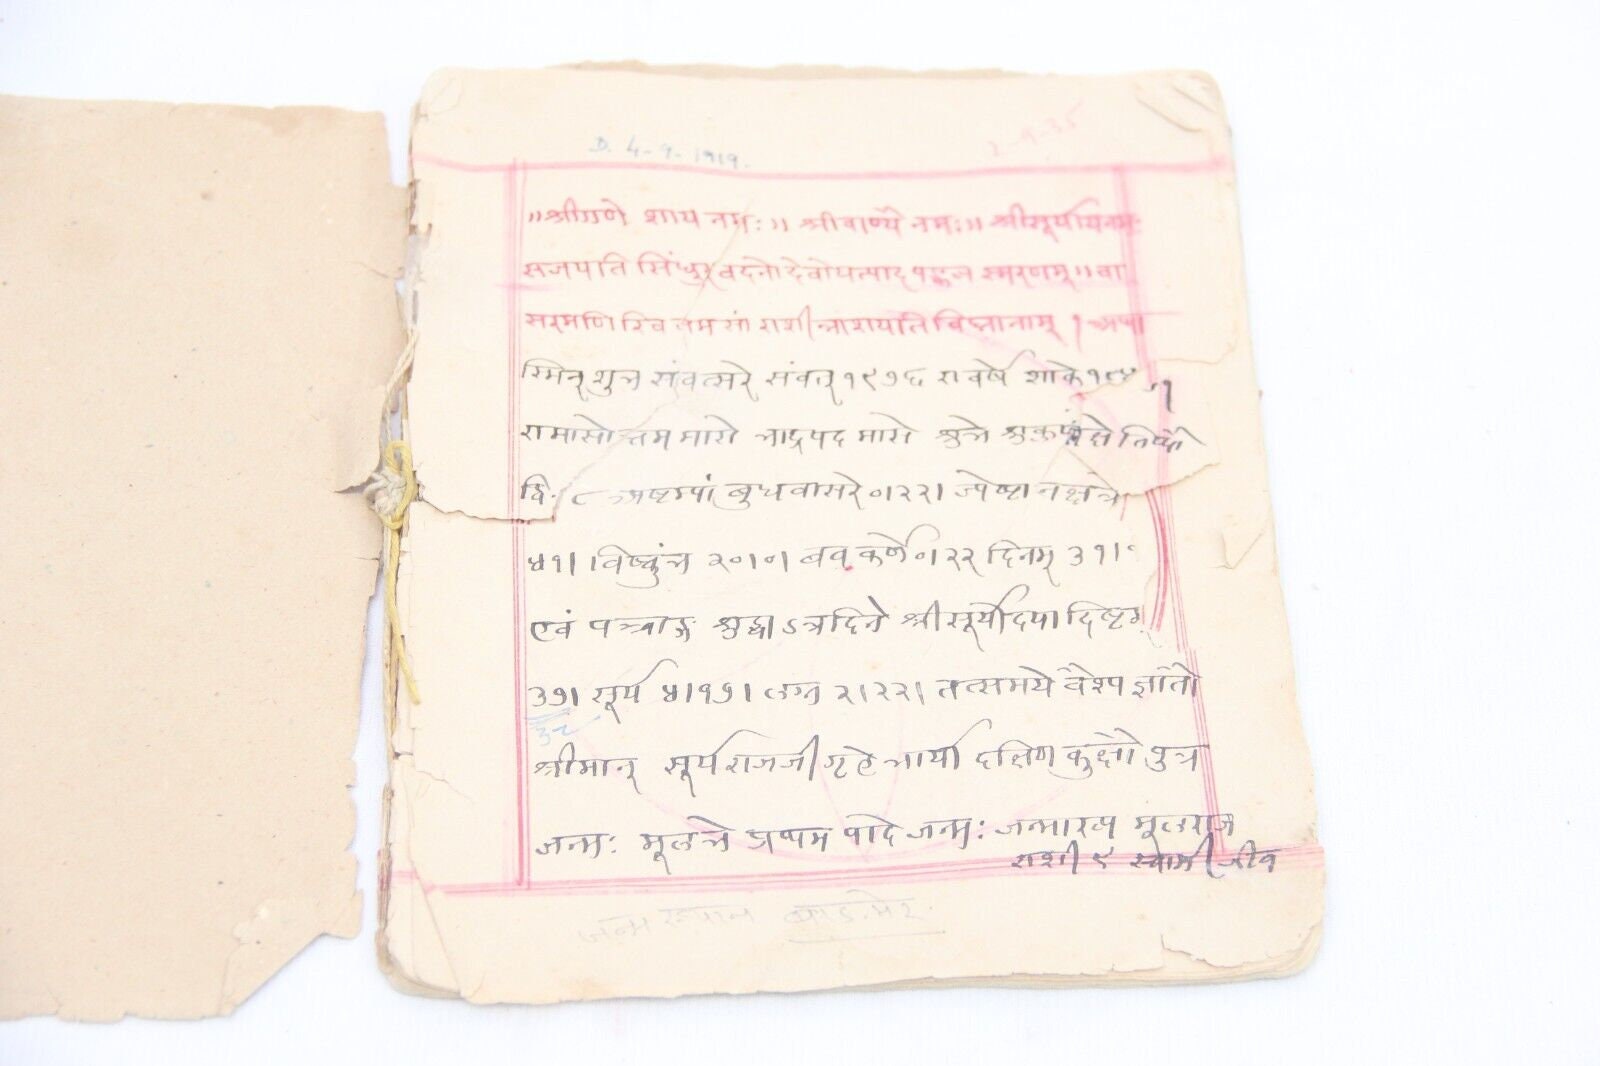 D. 4-9-1919.
2-9-35
॥ श्रीगणे शाय नमः॥ श्रीवाण्यै नमः॥ श्रीसूर्यायनमः
सजयति सिंधुर वदनो देवोयत्पाद पङ्कज स्मरणम्॥ वा
सरमणि रिव तम सां राशीन्नाशयति विघ्नानाम् । अथा
स्मिन् शुभ संवत्सरे संवत् १९७६ रा वर्षे शाके १८४१
रामासो त्तम मासे भाद्रपद मासे शुभे शुक्लपक्षे तिथौ
८ अष्टम्यां बुधवासरे ०।२२। ज्येष्ठा नक्षत्रे
४१। विष्कुंभ २०।०। बव कर्णे ०।२२ दिनम् ३१।
एवं पञ्चाङ्ग शुद्धा ऽत्रदिने श्री सूर्योदया दिष्टम्
३७। सूर्य ४।१७। लग्न २।२२। तत्समये वैश्य ज्ञातौ
३८
श्रीमान् सूर्यराजजी गृहे भार्या दक्षिण कुक्षौ पुत्र
जन्मः मूलभे प्रथम पादे जन्मः जन्माख्य मूलराज
राशी ९ स्वामी जीव
जन्म स्थान बाडमेर.